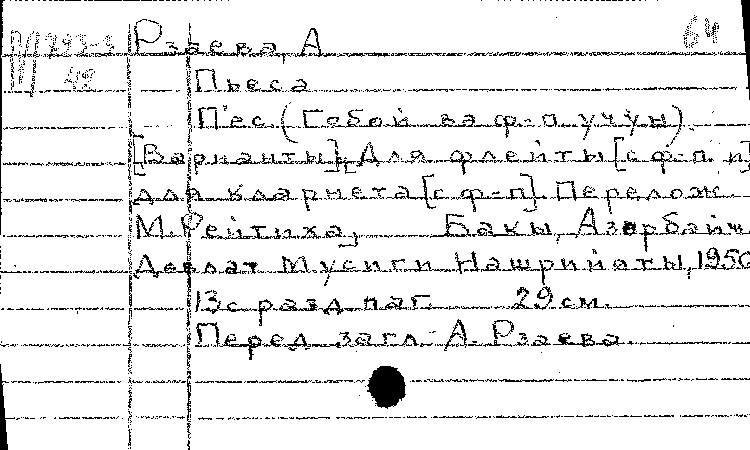 Рзаева, А 64
Пьеса
П'ес (Гобой вә ф-п учун).
[Варианты]: Для флейты [с ф-п. и]
для кларнета [с ф-п]. Перелож.
М. Рейтиха, Бакы, Азәрбайҹ.
Девлат Мусиги Нашрийаты, 1950
13 с разд. паг. 29 см.
Перед загл.- А. Рзаева.